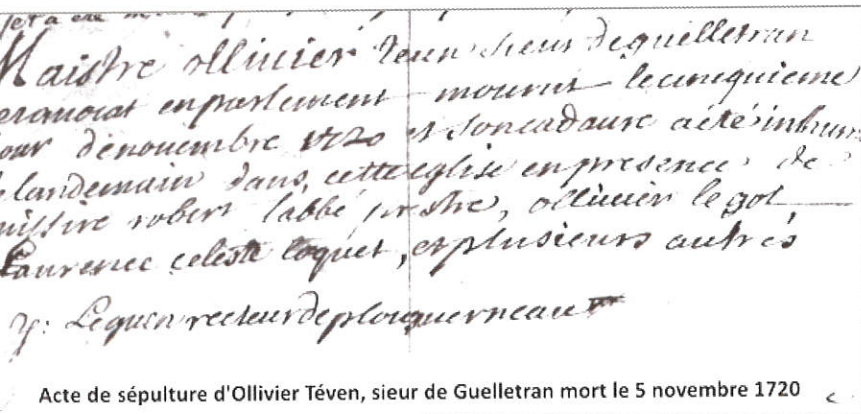 jet a été
Maistre ollivier Teven sieur de quelletran
et avocat en parlement mourut le cinquieme
jour de novembre 1720 et son cadavre a été inhumé
le landemain dans, cette eglise en presence de
missire robert labbé prestre, ollivier le gol
Laurence celeste loquet, et plusieurs autres
Lequen recteur de plouguerneau
Acte de sépulture d'Ollivier Téven, sieur de Guelletran mort le 5 novembre 1720